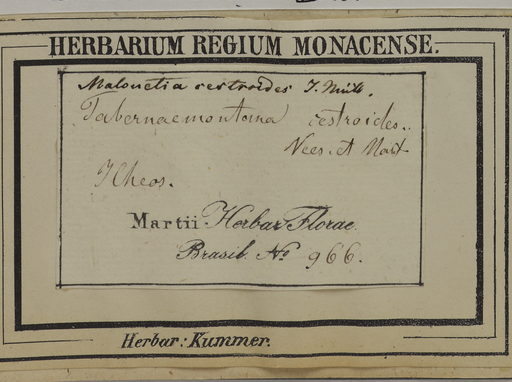 HERBARIUM REGIUM MONACENSE.
Malouetia cestroides J. Müll.
Tabernaemontana cestroides..
Nees. et Mart
Ilheos.
Martii Herbar. Florae
Brasil. No 966.
Herbar: Kummer.